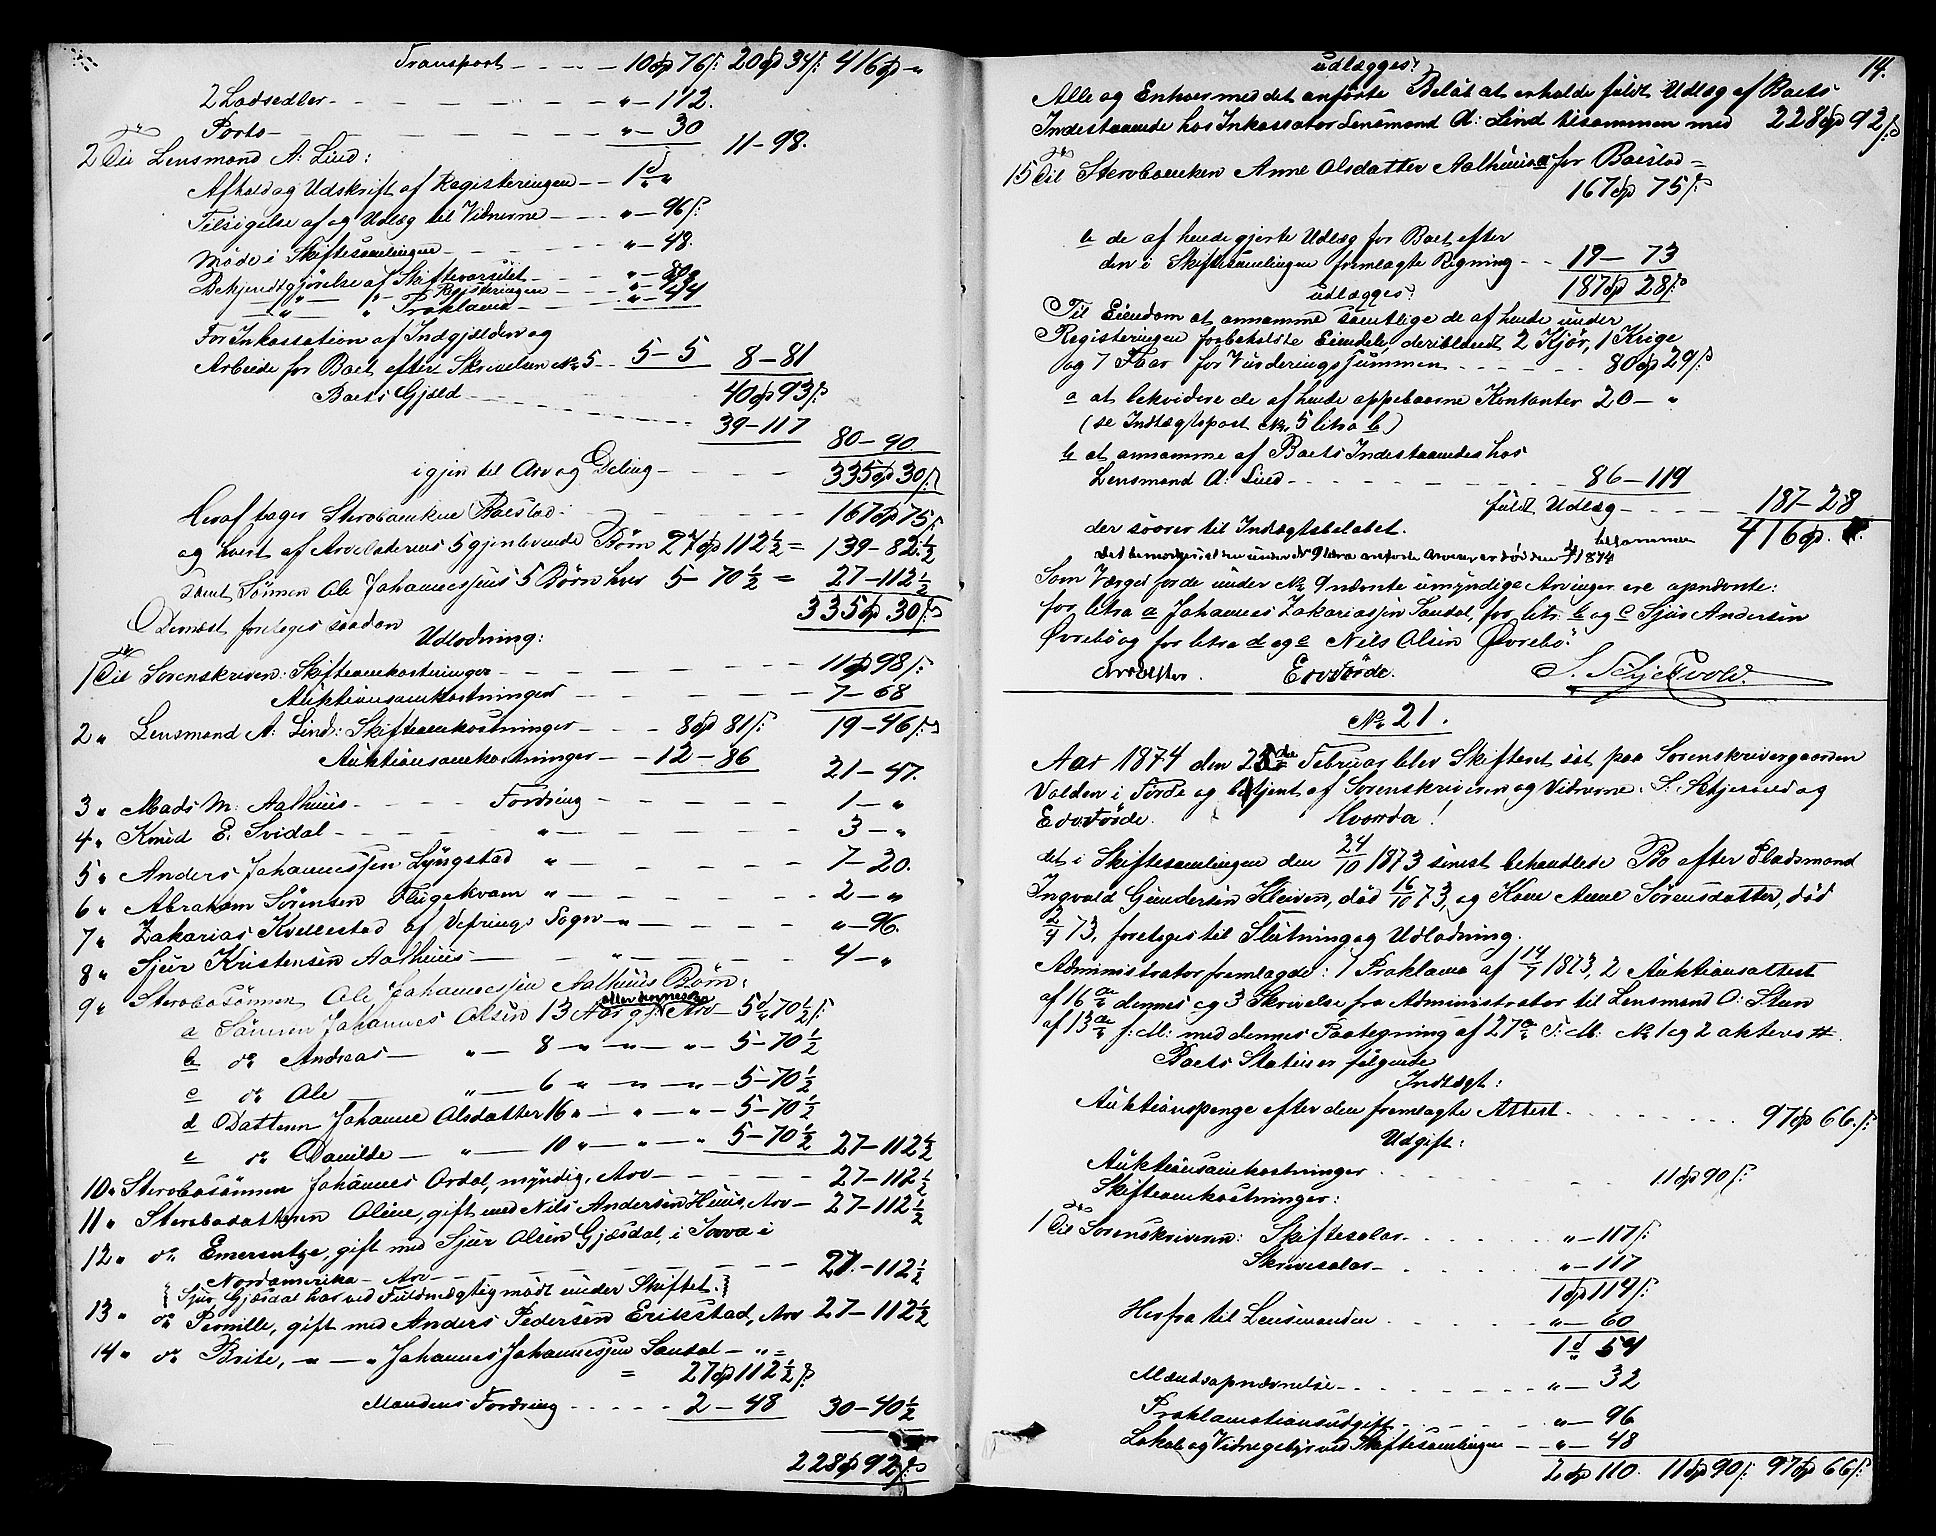 Transport - - - - 10 σp 76 ß. 20 σp 34 ß. 416 σp "
2 Lodsedler - - - - - - " - 112.
Porto - - - - - - " - 30
11 - 98.
2 Til Lensmand A: Lind:
Afhold og Udskrift af Registeringen - - 1 "
Tilsigelse af og Udlæg til Vidnerne - - - " - 96 ß.
Møde i Skiftesamlingen - - - - " - 48.
Bekjendtgjørelse af Skiftevarselet - - -
- " - " - Registeringen - - -
- " - " Proklama - - - " - 44
For Inkassation af Indgjælden og
Arbeide for Boet efter Skrivelsen No 5 - - 5 - 5 8 - 81
40 σp 93 ß.
Boets Gjæld - - - - - 39 - 117
80 - 90.
igjen til Arv og Deling - - - - 335 σp 30 ß
Heraf tager Stervboenken Boeslod - - - - 167 σp 75 ß
og hvert af Arveladerens 5 gjenlevende Børn 27 σp 112 ½ = 139 - 82 ½
samt Sønnen Ole Johannessens 5 Børn hver 5 - 70 ½ = 27 - 112 ½
335 σp 30 ß
Dernæst foretoges saadan
Udlodning:
1 Til Sorenskriveren: Skifteomkostninger - - - - 11 σp 98 ß.
Auktionsomkostninger - - - - 7 - 68
19 - 46 ß
2 " Lensmand A: Lind: Skifteomkostninger - - - 8 σp 81 ß.
Auktionsomkostninger - - 12 - 86
21 - 47.
3 " Mads M: Aalhuus - - - - Fordring - - - - 1 - "
4 " Knud E. Svidal - - - - " - - - - 3 - "
5 " Anders Johannessen Lyngstad " - - - - 7 - 20.
6 " Abraham Sørensen Flugekvam " - - - - 2 - "
7 " Zakarias Kvellestad af Vefrings Sogn - " - - - " - 96.
8 " Sjur Kristensen Aalhuus - - " - - - 4 - "
9 " Stervbosønnen Ole Johannessen Aalhuus Børn:
a Sønnen Johannes Olsen 13 Aar gl. Arv - 5 70 ½ ß.
b do Andreas - " - 8 " - " - " - 5 - 70 ½
c do Ole - " - 6 " - " - " - 5 - 70 ½
d Datteren Johanne Olsdatter 16 " - " - " - 5 - 70 ½
e do Davilde - " - 10 " - " - " 5 - 70 ½ 27 - 112 ½
10 " Stervbosønnen Johannes Ordal, myndig, Arv - - - - 27 - 112 ½
11 " Stervbodatteren Oline, gift med Nils Andersen Huus, Arv - 27 - 112 ½
12 " do Emerentze, gift med Sjur Olsen Gjæsdal, i Iowa i
Nordamerika - Arv - - - - 27 - 112 ½
{ Sjur Gjæsdal har ved Fuldmægtig mødt under Skiftet. }
13 " do Pernille, gift med Anders Pedersen Erikstad, Arv 27 - 112 ½
14 " do Brite, - " - " Johannes Johannessen Sandal - " =
= 27 σp 112 ½ ß
Mandens Fordring - - - - 2 - 48 30 - 40 ½
228 σp 92 ß.
14.
udlægges:
Alle og Enhver med det anførte Beløb at erholde fuldt Udlæg af Boets
Indestaaende hos Inkassator Lensmand A: Lind tilsammen med 228 σp 92 ß
15 Til Stervboenken Anne Olsdatter Aalhuus a for Boeslod =
167 σp 75 ß
b de af hende gjorte Udlæg for Boet efter
den i Skiftesamlingen fremlagte Regning - - 19 - 73
187 σp 28 ß.
udlægges:
Til Eiendom at annamme samtlige de af hende under
Registeringen forbeholdte Eiendele, deriblandt 2 Kjør, 1 Kvige
og 7 Faar for Vurderingssummen - - - - 80 σp 29 ß
a at likvidere de af hende oppebaarne Kontanter 20 - "
(se Indtægtspost No 5 litra b)
b at annamme af Boets Indestaaende hos
Lensmand A: Lind - - - - 86 - 119
fuldt Udlæg - - - - 187 - 28
der svarer til Indtægtsbeløbet. tilsammen 416 σp. "
Det bemærkes at den under No 9 litra anførte Arving er død den 1874
Som Værger for de under No 9 nævnte umyndige Arvinger ere opnævnte:
for litra a Johannes Zakariassen Sandal, for litr. b og c Sjur Andersen
Øvrebø og for litra d og e Nils Olsen Øvrebø.
EovFørde. S. Schjelvold.
No 21.
Aar 1874 den 25de Februar blev Skifteret sat paa Sorenskrivergaarden
Valden i Førde og betjent af Sorenskriveren og Vidnerne: S. og
EovFørde. Hvorda!
det i Skiftesamlingen den 24/10 1873 sidst behandlede Bo efter Pladsmand
Ingvald Gundersen Kleiven, død 16/10 73, og Kone Anne Sørensdatter, død
2/4 73, foretoges til Slutning og Udlodning.
Administrator fremlagde: 1 Proklama af 14/7 1873, 2 Auktionsattest
af 16 dennes og 3 Skrivelse fra Administrator til Lensmand O: Steen
af 13 f: M: med dennes Paategning af 27 s: M: No 1 og 2 akteres #.
Boets Status er følgende
Indtægt:
Auktionspenge efter den fremlagte Attest - - - - 97 σp 66 ß
Udgift:
Auktionsomkostninger - - - - 11 σp 90 ß.
Skifteomkostninger:
1 Til Sorenskriveren: Skiftesalar - - - - " - 117 ß.
Skrivesalar - - - - " - 117
1 σp 114 ß.
Herfra til Lensmanden - - - - " - 60
1 54
Mændsopnævnelse - - - - " - 32
Proklamationsudgift - - - - " - 96
Lokale og Vidnegebyr ved Skiftesamlingen - - " - 48
2 σp 110. 11 σp 90 ß. 97 σp 66 ß.